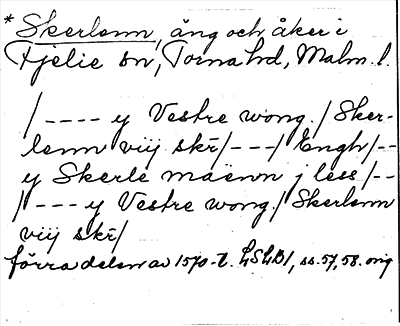 * Skerlenn, äng och åker i
Fjelie sn, Torna hd, Malm. l.
/ ---- y Vestre wong. / Sker-
lenn viij skr̄/---/ Engh/--
y Skerle maëwn j less /--
/ --- y Vestre wong./ Skerlenn
viij skr̄/
förra delen av 1570-t. LSLB1, ss. 57, 58. orig